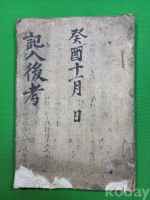 癸酉十一月 日
記入後考
kobay